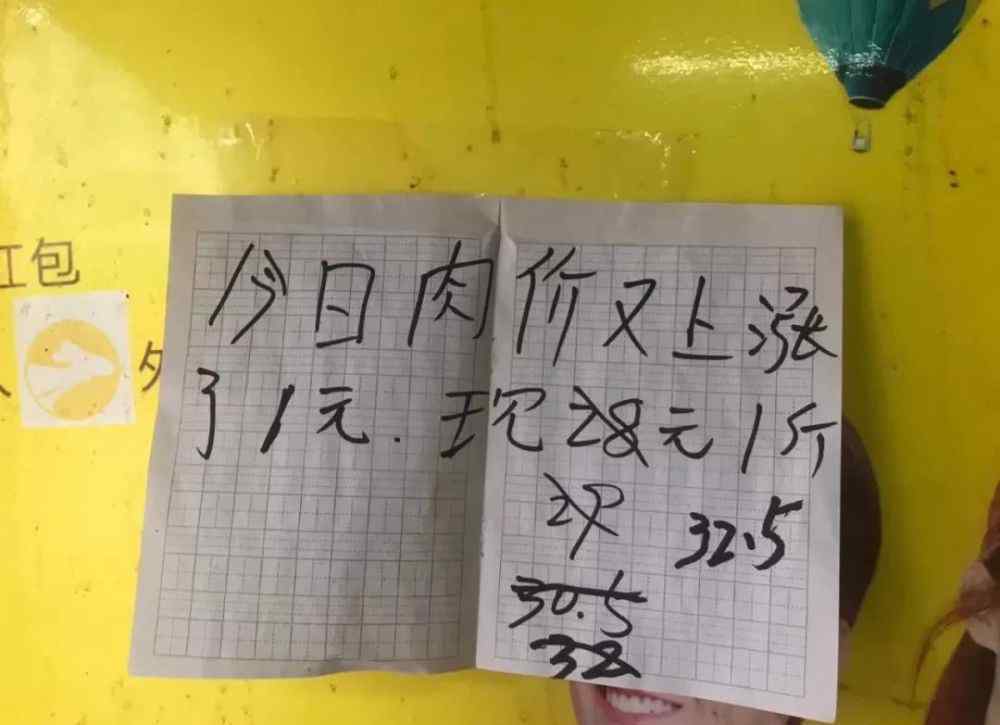 红包
外
今日肉价又上涨
了1元.现28元1斤
29 32.5
30.5
32